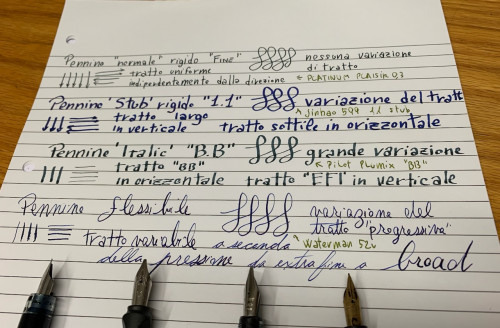 Pennino "normale" rigido "Fine" nessuna variazione
tratto uniforme di tratto
indipendentemente dalla direzione ↖ PLATINUM PLAISIR 0.3
Pennino 'Stub' rigido "1.1" variazione del tratt
tratto largo ↖ Jinhao 599 1.1 stub
in verticale tratto sottile in orizzontale
Pennino 'Italic' "B.B" grande variazione
tratto "BB" ↖ Pilot Plumix "BB"
in orizzontale tratto "EF" in verticale
Pennino flessibile variazione del
tratto "progressiva"
tratto variabile a seconda ↖ Waterman 52v
della pressione da extrafine a broad